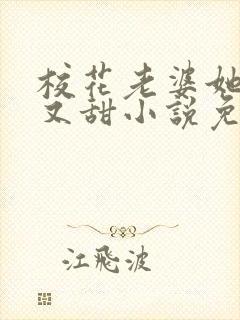 校花老婆她
又甜小说免
江飛波